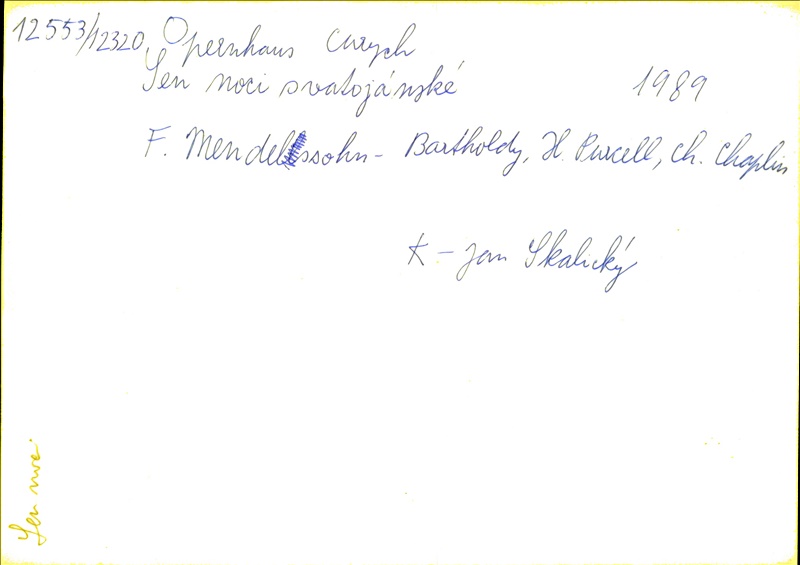 12553/12320, Opernhaus Curych
Sen noci svatojánské 1989
F. Mendelssohn - Bartholdy, H. Purcell, Ch. Chaplin
K - Jan Skalický
Sen